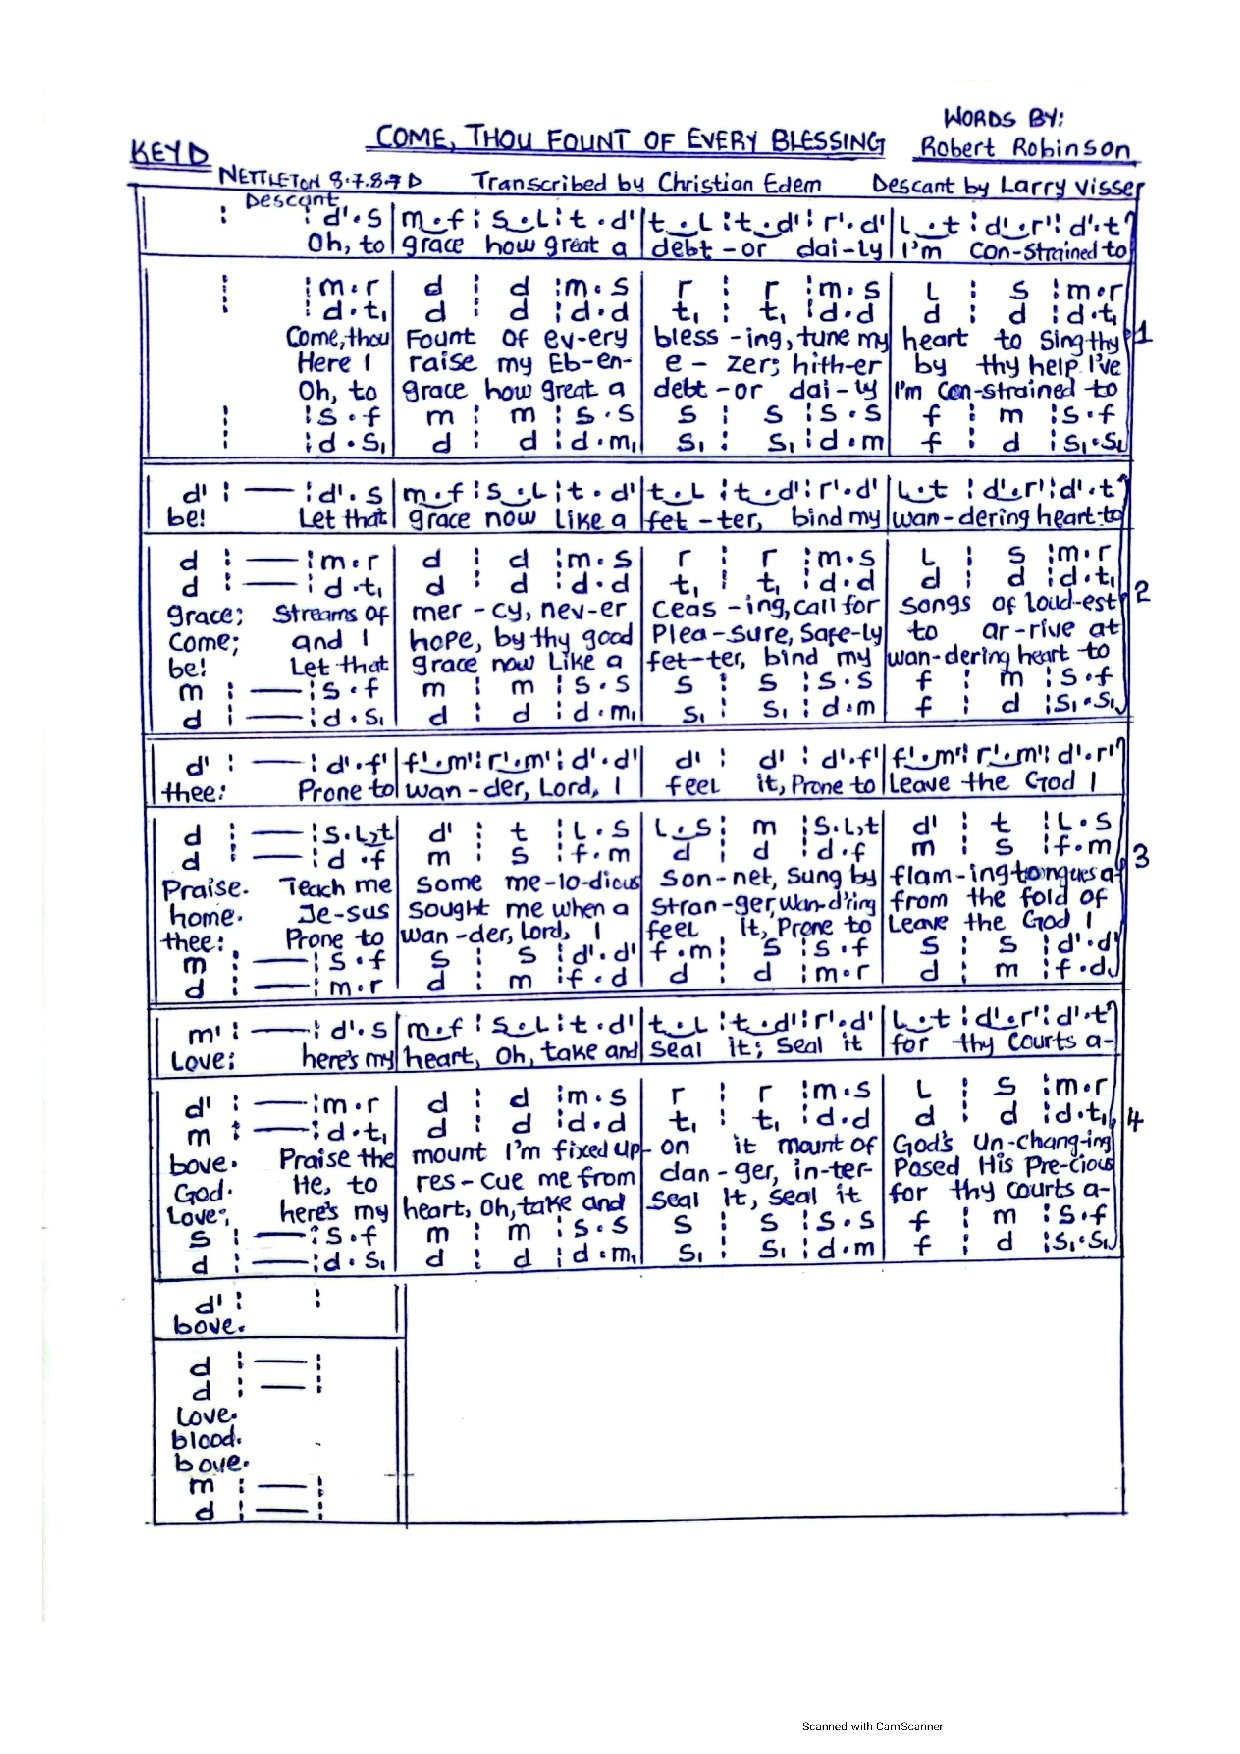 WORDS BY:
KEY D COME, THOU FOUNT OF EVERY BLESSING Robert Robinson
NETTLETON 8.7.8.7 D Transcribed by Christian Edem Descant by Larry Visser
Descant
: : d'.s | m.f : s.l : t.d' | t.l : t.d' : r'.d' | l.t : d'.r' : d'.t
Oh, to grace how great a debt-or dai-ly I'm Con-strained to
: : m.r | d : d : m.s | r : r : m.s | l : s : m.r
: : d.t₁ | d : d : d.d | t₁ : t₁ : d.d | d : d : d.t₁
Come, thou Fount of ev-ery bless-ing, tune my heart to Sing thy 1
Here I raise my Eb-en-e-zer; hith-er by thy help I've
Oh, to grace how great a debt-or dai-ly I'm Con-strained to
: : s.f | m : m : s.s | s : s : s.s | f : m : s.f
: : d.s₁ | d : d : d.m₁ | s₁ : s₁ : d.m | f : d : s₁.s₁
d' : — : d'.s | m.f : s.l : t.d' | t.l : t.d' : r'.d' | l.t : d'.r' : d'.t
be! Let that grace now like a fet-ter, bind my wan-dering heart to
d : — : m.r | d : d : m.s | r : r : m.s | l : s : m.r
d : — : d.t₁ | d : d : d.d | t₁ : t₁ : d.d | d : d : d.t₁
grace; Streams of mer-cy, nev-er Ceas-ing, call for songs of loud-est 2
Come; and I hope, by thy good Plea-sure, Safe-ly to ar-rive at
be! Let that grace now Like a fet-ter, bind my wan-dering heart to
m : — : s.f | m : m : s.s | s : s : s.s | f : m : s.f
d : — : d.s₁ | d : d : d.m₁ | s₁ : s₁ : d.m | f : d : s₁.s₁
d' : — : d'.f' | f'.m' : r'.m' : d'.d' | d' : d' : d'.f' | f'.m' : r'.m' : d'.r'
thee: Prone to wan-der, Lord, I feel it, Prone to Leave the God I
d : — : s.l,t | d' : t : l.s | l.s : m : s.l,t | d' : t : l.s
d : — : d.f | m : s : f.m | d : d : d.f | m : s : f.m
Praise. Teach me some me-lo-dious Son-net, Sung by flam-ing tongues of 3
home. Je-sus Sought me when a Stran-ger, wan-d'ring from the fold of
thee: Prone to wan-der, lord, I feel It, Prone to Leave the God I
m : — : s.f | s : s : d'.d' | f.m : s : s.f | s : s : d'.d'
d : — : m.r | d : m : f.d | d : d : m.r | d : m : f.d
m' : — : d'.s | m.f : s.l : t.d' | t.l : t.d' : r'.d' | l.t : d'.r' : d'.t
Love; here's my heart, Oh, take and Seal it; Seal it for thy Courts a-
d' : — : m.r | d : d : m.s | r : r : m.s | l : s : m.r
m : — : d.t₁ | d : d : d.d | t₁ : t₁ : d.d | d : d : d.t₁ 4
bove. Praise the mount I'm fixed up-on it mount of God's Un-chang-ing
God. He, to res-cue me from dan-ger, in-ter-Posed His Pre-cious
Love; here's my heart, Oh, take and Seal It, seal it for thy Courts a-
s : — : s.f | m : m : s.s | s : s : s.s | f : m : s.f
d : — : d.s₁ | d : d : d.m₁ | s₁ : s₁ : d.m | f : d : s₁.s₁
d' : :
bove.
d : — :
d : — :
Love.
blood.
bove.
m : — :
d : — :
Scanned with CamScanner